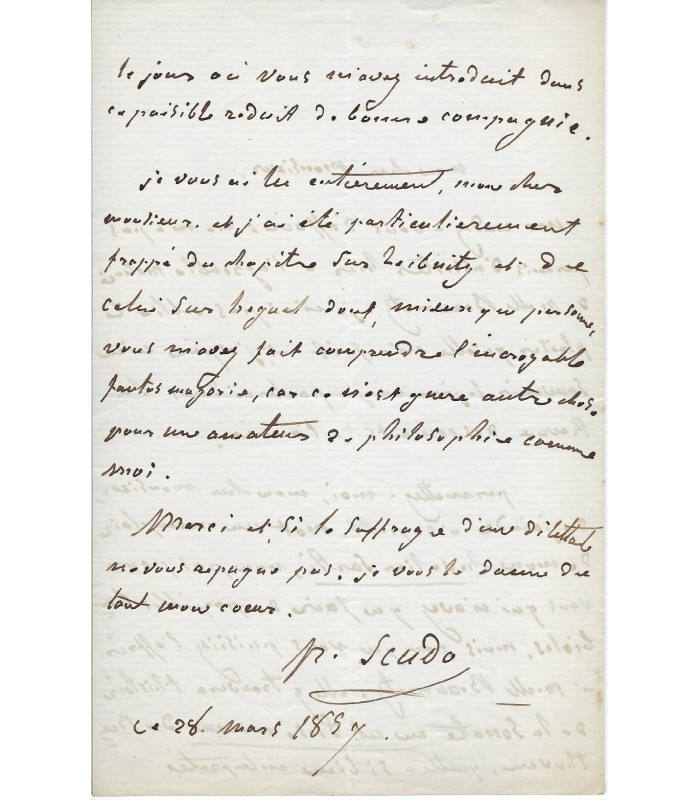 le jour où vous m'avez introduit dans
ce paisible réduit de bonne compagnie.
je vous ai lu entièrement, mon cher
monsieur. et j'ai été particulièrement
frappé du chapitre sur Leibnitz et de
celui sur heguel dont, mieux que personne,
vous m'avez fait comprendre l'incroyable
fantasmagorie, car ce n'est guere autre chose
pour un amateur de philosophie comme
moi.
Merci et, si le suffrage d'un dilettante
ne vous repugne pas, je vous le donne de
tout mon coeur.
p. Scudo
ce 28. mars 1857.